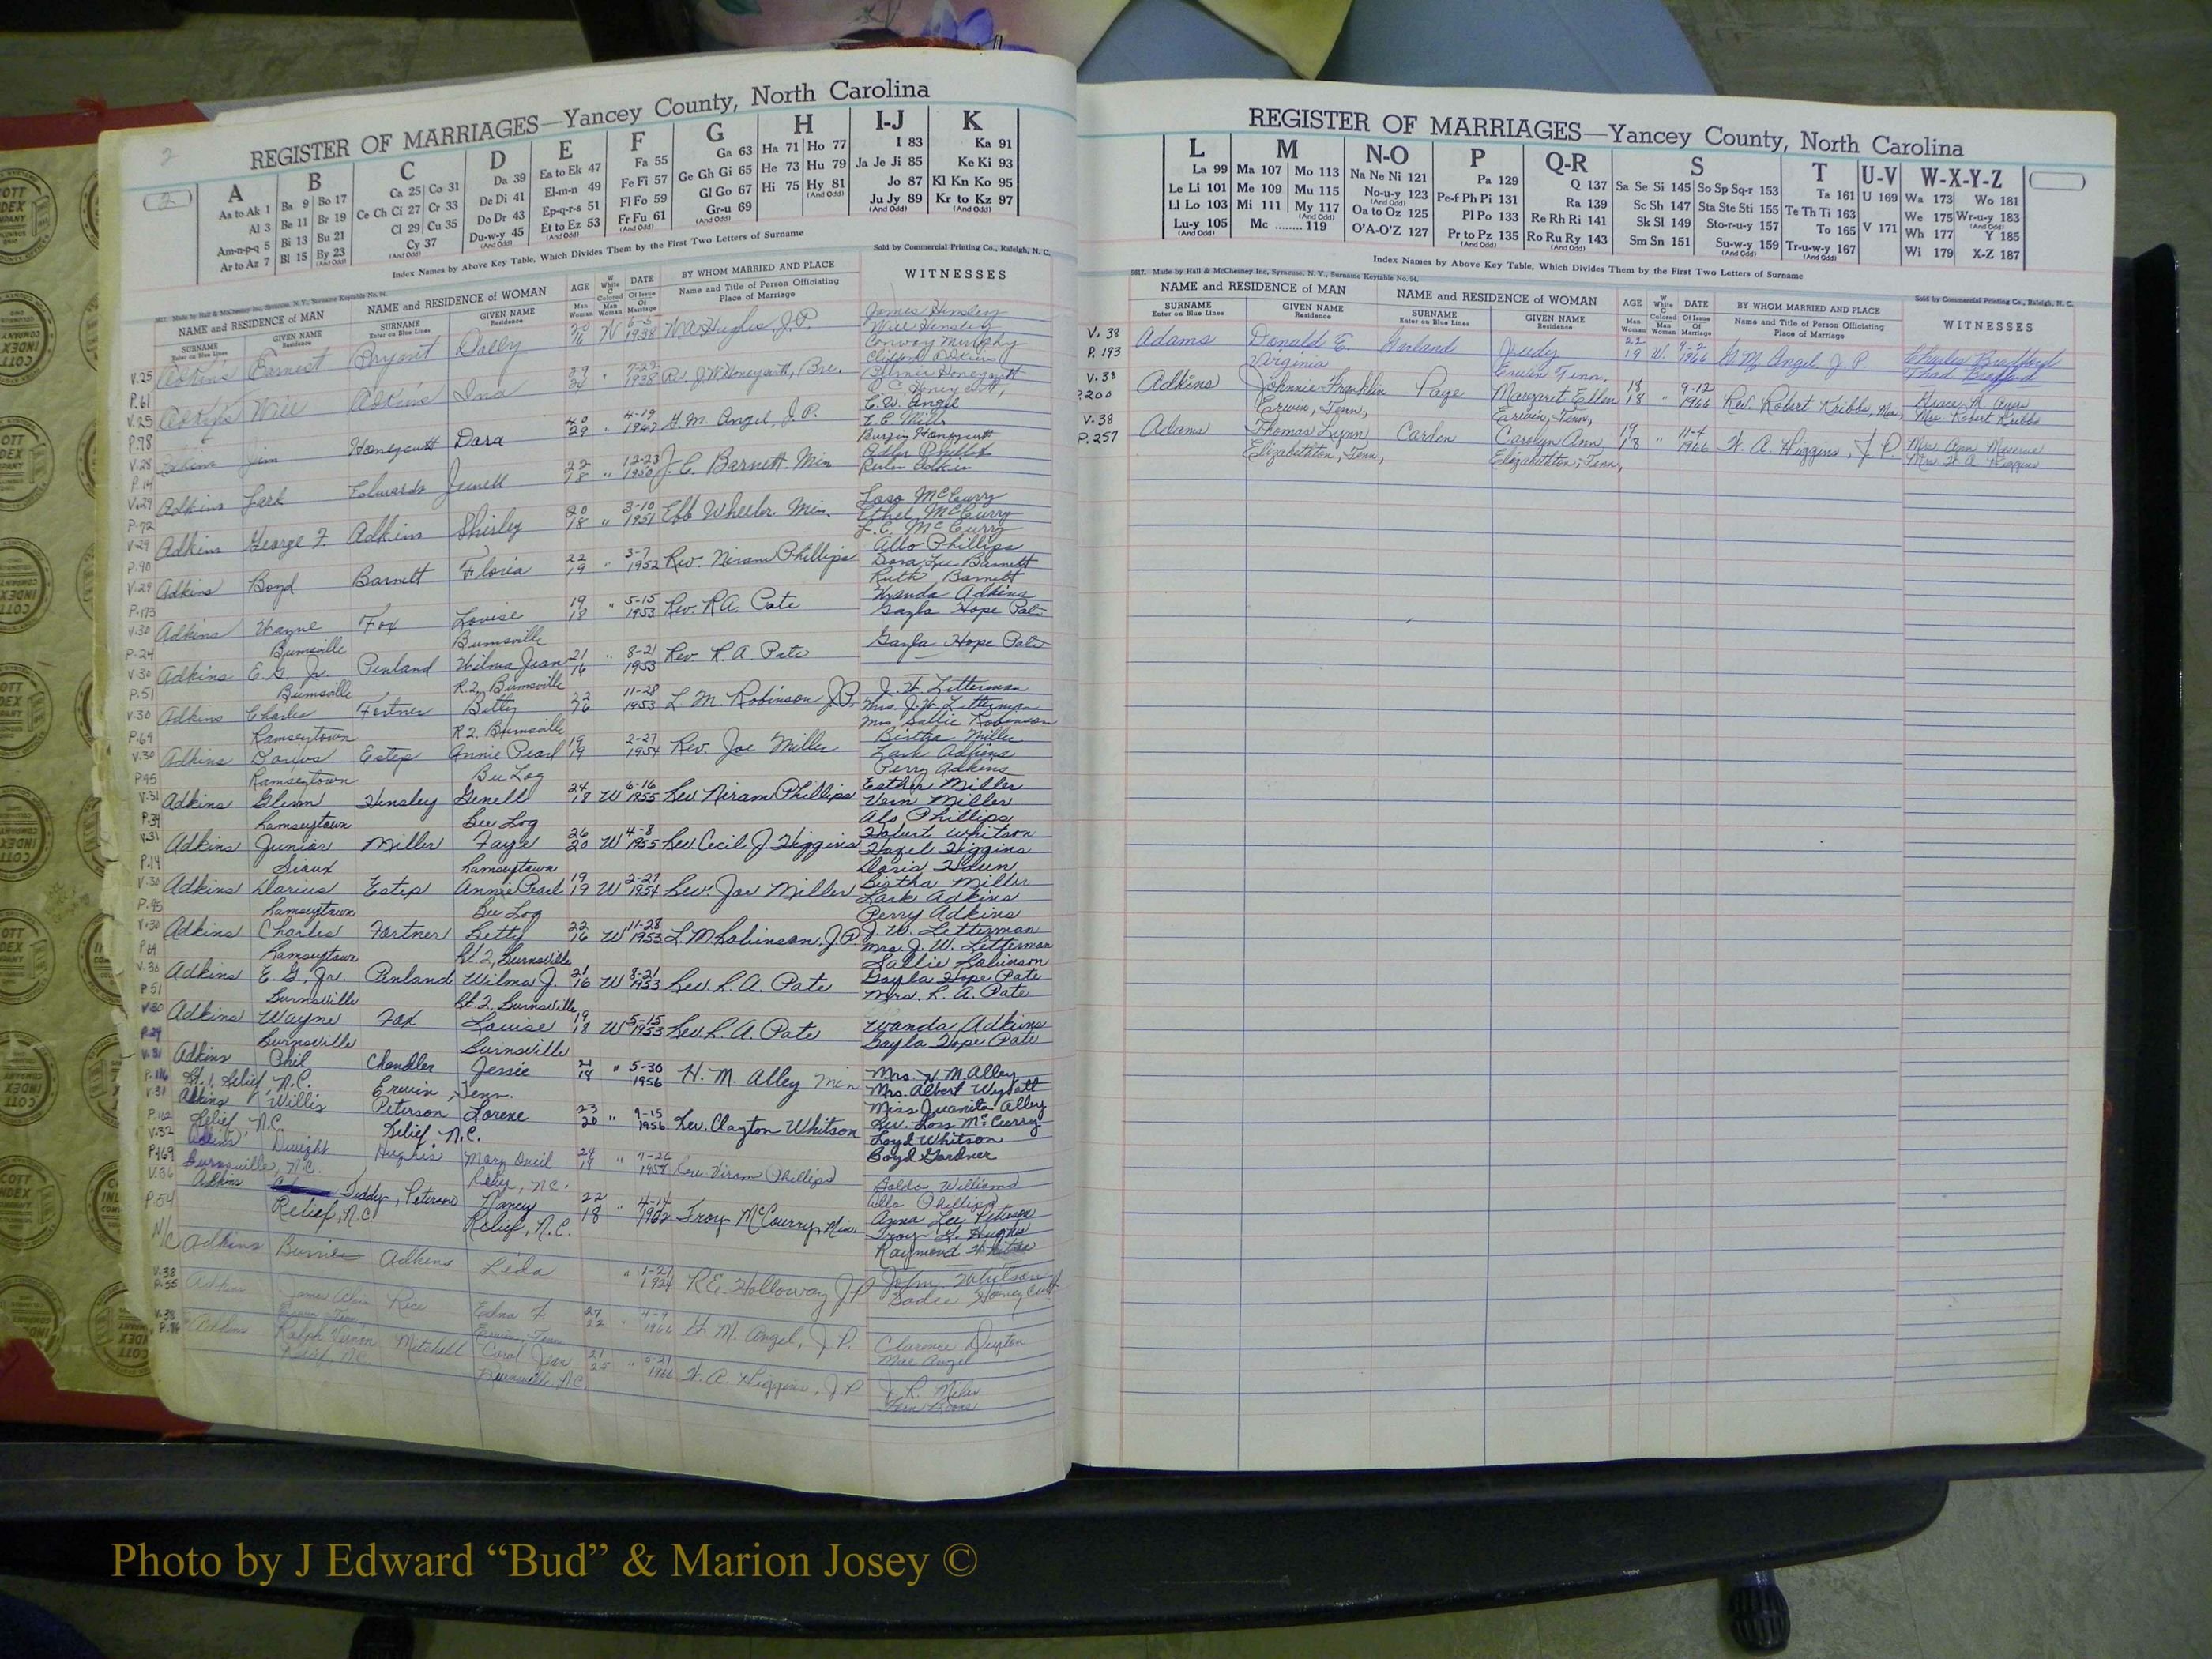 2
REGISTER OF MARRIAGES—Yancey County, North Carolina
A B C D E F G H I-J K
Aa to Ak 1 Ba 9 Bo 17 Ca 25 Co 31 Da 39 Ea to Ek 47 Fa 55 Ga 63 Ha 71 Ho 77 I 83 Ka 91
Al 3 Be 11 Br 19 Ce Ch Ci 27 Cr 33 De Di 41 El-m-n 49 Fe Fi 57 Ge Gh Gi 65 He 73 Hu 79 Ja Je Ji 85 Ke Ki 93
Am-n-p-q 5 Bi 13 Bu 21 Cl 29 Cu 35 Do Dr 43 Ep-q-r-s 51 Fl Fo 59 Gl Go 67 Hi 75 Hy 81 Jo 87 Kl Kn Ko 95
Ar to Az 7 Bl 15 By 23 Cy 37 Du-w-y 45 Et to Ez 53 Fr Fu 61 Gr-u 69 Ju Jy 89 Kr to Kz 97
Index Names by Above Key Table, Which Divides Them by the First Two Letters of Surname
Sold by Commercial Printing Co., Raleigh, N. C.
NAME and RESIDENCE of MAN NAME and RESIDENCE of WOMAN AGE DATE BY WHOM MARRIED AND PLACE WITNESSES
SURNAME GIVEN NAME SURNAME GIVEN NAME Name and Title of Person Officiating
Enter on Blue Lines Residence Enter on Blue Lines Residence Place of Marriage
V.25 Adkins Earnest Bryant Dolly 1938 W.A. Hughes J.P. James Hensley
P.61 Will Hensley
Conway Murphy
V.25 Adkins Will Adkins Ina 7-22 1938 J.W. Honeycutt
P.78
V.28 Adkins Jim Honeycutt Dora 40 29 " 4-19 1947 G.M. Angel, J.P. C.W. Angel
P.14 E.E. Mills
V.29 Adkins Lark Edwards Jewell 22 18 " 12-23 1950 J.C. Barnett Min
P.72
V.29 Adkins George F. Adkins Shirley 20 18 " 3-10 1951 Ebb Wheeler. Min. Loso McCurry
P.90 Ethel McCurry
V.29 Adkins Boyd Barnett Floria 22 19 " 3-7 1952 Rev. Niram Phillips Allo Phillips
P.173 Ruth Barnett
V.30 Adkins Wayne Fox Louise 19 18 " 5-15 1953 Rev. R.A. Pate Wanda Adkins
P.24 Burnsville Burnsville Gayla Hope Pate
V.30 Adkins E.G. Jr. Penland Wilma Jean 21 16 " 8-21 1953 Rev. R.A. Pate Gayla Hope Pate
P.51 Burnsville R.2, Burnsville
V.30 Adkins Charles Fortner Betty 22 16 11-28 1953 L.M. Robinson J.P. J.W. Letterman
Mrs. J.W. Letterman
P.69 Ramseytown R.2. Burnsville Mrs. Sallie Robinson
V.30 Adkins Darius Estep Annie Pearl 19 19 2-27 1954 Rev. Joe Miller Birtha Miller
Lark Adkins
P.95 Ramseytown Bee Log Perry Adkins
V.31 Adkins Glenn Hensley Genell 24 18 W 6-16 1955 Rev Niram Phillips Esther Miller
Vern Miller
P.34 Ramseytown Bee Log Alo Phillips
V.31 Adkins Junior Miller Faye 26 20 W 4-8 1955 Rev Cecil J. Higgins Hobert Whitson
Hazel Higgins
P.14 Sioux Ramseytown
V.30 Adkins Darius Estep Annie Pearl 19 19 W 2-27 1954 Rev. Joe Miller Birtha Miller
Lark Adkins
P.95 Ramseytown Bee Log Perry Adkins
V.30 Adkins Charles Fortner Betty 22 16 W 11-28 1953 L.M. Robinson, J.P. J.W. Letterman
Mrs. J.W. Letterman
P.69 Ramseytown Rt.2, Burnsville Sallie Robinson
V.30 Adkins E.G., Jr. Penland Wilma J. 21 16 W 8-21 1953 Rev. R.A. Pate Gayla Hope Pate
P.51 Burnsville Rt.2, Burnsville Mrs. R.A. Pate
V.30 Adkins Wayne Fox Louise 19 18 W 5-15 1953 Rev. R.A. Pate Wanda Adkins
P.24 Burnsville Burnsville Gayla Hope Pate
V.31 Adkins Phil Chandler Jessie 21 18 " 5-30 1956 H.M. Alley Min Mrs. H.M. Alley
P.116 Rt.1, Relief, N.C. Erwin, Tenn. Mrs. Albert Wyatt
Miss Juanita Alley
V.31 Adkins Willis Peterson Lorene 23 20 " 9-15 1956 Rev. Clayton Whitson Rev. Ross McCurry
P.162 Relief, N.C. Relief, N.C. Loyd Whitson
Boyd Gardner
V.32 Adkins Dwight Hughes Mary Oneil 24 18 " 7-26 Rev. Niram Phillips Golda Williams
P.169 Burnsville, N.C. Alla Phillips
V.36 Adkins Teddy, Peterson Nancy 22 18 " 4-14 1962 Troy McCourry, Min. Anna Lee Peterson
P.54 Relief, N.C. Relief, N.C. Raymond
N/C Adkins Burnice Adkins Leda " 1-27 1924 R.E. Holloway J.P. John Whitson
Sadie Honeycutt
V.38 Adkins James Rice Edna F. 27 22 1966 G.M. Angel, J.P. Clarence Deyton
P.55 Erwin, Tenn Mae Angel
V.38 Adkins Ralph Vernon Mitchell Coral Jean 21 25 " 5-21 1966 W.A. Higgins, J.P.
Relief, N.C. Burnsville, N.C.
REGISTER OF MARRIAGES—Yancey County, North Carolina
L M N-O P Q-R S T U-V W-X-Y-Z
La 99 Ma 107 Mo 113 Na Ne Ni 121 Pa 129 Q 137 Sa Se Si 145 So Sp Sq-r 153 Ta 161 U 169 Wa 173 Wo 181
Le Li 101 Me 109 Mu 115 No-u-y 123 Pe-f Ph Pi 131 Ra 139 Sc Sh 147 Sta Ste Sti 155 Te Th Ti 163 We 175 Wr-u-y 183
Ll Lo 103 Mi 111 My 117 Oa to Oz 125 Pl Po 133 Re Rh Ri 141 Sk Sl 149 Sto-r-u-y 157 To 165 V 171 Wh 177 Y 185
Lu-y 105 Mc ........ 119 O'A-O'Z 127 Pr to Pz 135 Ro Ru Ry 143 Sm Sn 151 Su-w-y 159 Tr-u-w-y 167 Wi 179 X-Z 187
Index Names by Above Key Table, Which Divides Them by the First Two Letters of Surname
5617. Made by Hall & McChesney Inc, Syracuse, N. Y., Surname Keytable No. 94. Sold by Commercial Printing Co., Raleigh, N. C.
NAME and RESIDENCE of MAN NAME and RESIDENCE of WOMAN AGE DATE BY WHOM MARRIED AND PLACE WITNESSES
SURNAME GIVEN NAME SURNAME GIVEN NAME Name and Title of Person Officiating
Enter on Blue Lines Residence Enter on Blue Lines Residence Place of Marriage
V. 38 Adams Donald E. Garland Judy 22 19 W. 9-2 1966 G.M. Angel J.P. Charles Bradford
P. 193 Virginia Erwin Tenn. Thad Bradford
V. 38 Adkins Johnnie Franklin Page Margaret Ellen 18 18 " 9-12 1966 Rev. Robert Kribbs, Min.
P.200 Erwin, Tenn, Erwin, Tenn, Mrs. Robert Kribbs
V. 38 Adams Thomas Lynn Carden Carolyn Ann 19 18 " 11-4 1966 W. A. Higgins, J.P.
P. 257 Elizabethton, Tenn, Elizabethton, Tenn, Mrs. W A Higgins
Photo by J Edward “Bud” & Marion Josey ©